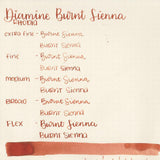 Diamine Burnt Sienna
RHODIA
extra fine - Burnt Sienna
Burnt Sienna
fine - Burnt Sienna
Burnt Sienna
medium - Burnt Sienna
Burnt Sienna
BROAD - Burnt Sienna
Burnt Sienna
FLEX - Burnt Sienna
Burnt Sienna